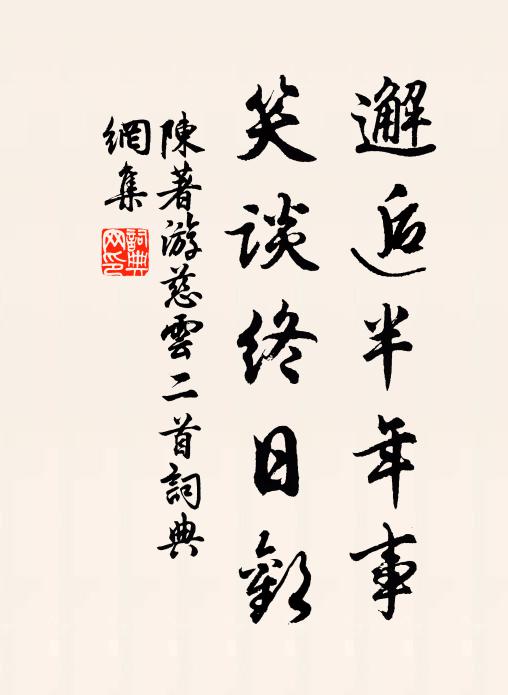 邂逅半年事
笑談終日歡
陳著游慈雲二首詞典
網集
詞典
网印